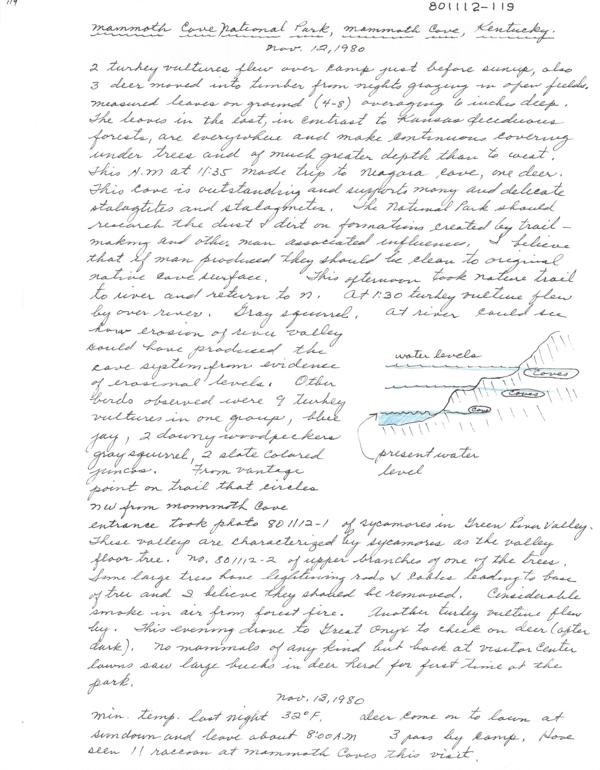 119
801112-119
Mammoth Cave National Park, Mammoth Cave, Kentucky.
Nov. 12, 1980
2 turkey vultures flew over camp just before sunup, also
3 deer moved into timber from nights grazing in open fields.
Measured leaves on ground (4-8) averaging 6 inches deep.
The leaves in the east, in contrast to Kansas deciduous
forests, are everywhere and make continuous covering
under trees and of much greater depth than to west.
This A.M at 11:35 made trip to Niagara Cave, one deer.
This cave is outstanding and supports many and delicate
stalagtites and stalagmites. The National Park should
research the dust & dirt on formations created by trail-
making and other man associated influences. I believe
that if man produced they should be clean to original
native cave surface. This afternoon took nature trail
to river and return to N. At 1:30 turkey vulture flew
by over river. Gray squirrel. At river could see
how erosion of river valley
could have produced the
cave system from evidence
of erosional levels. Other
birds observed were 9 turkey
vultures in one group, blue
jay, 2 downy woodpeckers
gray squirrel, 2 slate colored
juncos. From vantage
point on trail that circles
NW from Mammoth Cave
water levels
Caves
Caves
Cave
present water
level
entrance took photo 801112-1 of sycamores in Green River Valley.
These valleys are characterized by sycamores as the valley
floor tree. No. 801112-2 of upper branches of one of the trees.
Some large trees have lightening rods & cables leading to base
of tree and I believe they should be removed. Considerable
smoke in air from forest fire. Another turkey vulture flew
by. This evening drove to Great Onyx to check on deer (after
dark). No mammals of any kind but back at visitor center
lawns saw large bucks in deer herd for first time at the
park.
Nov. 13, 1980
Min. temp. last night 32°F. Deer come on to lawn at
sundown and leave about 8:00 AM 3 pass by camp. Have
seen 11 raccoon at Mammoth Caves this visit.